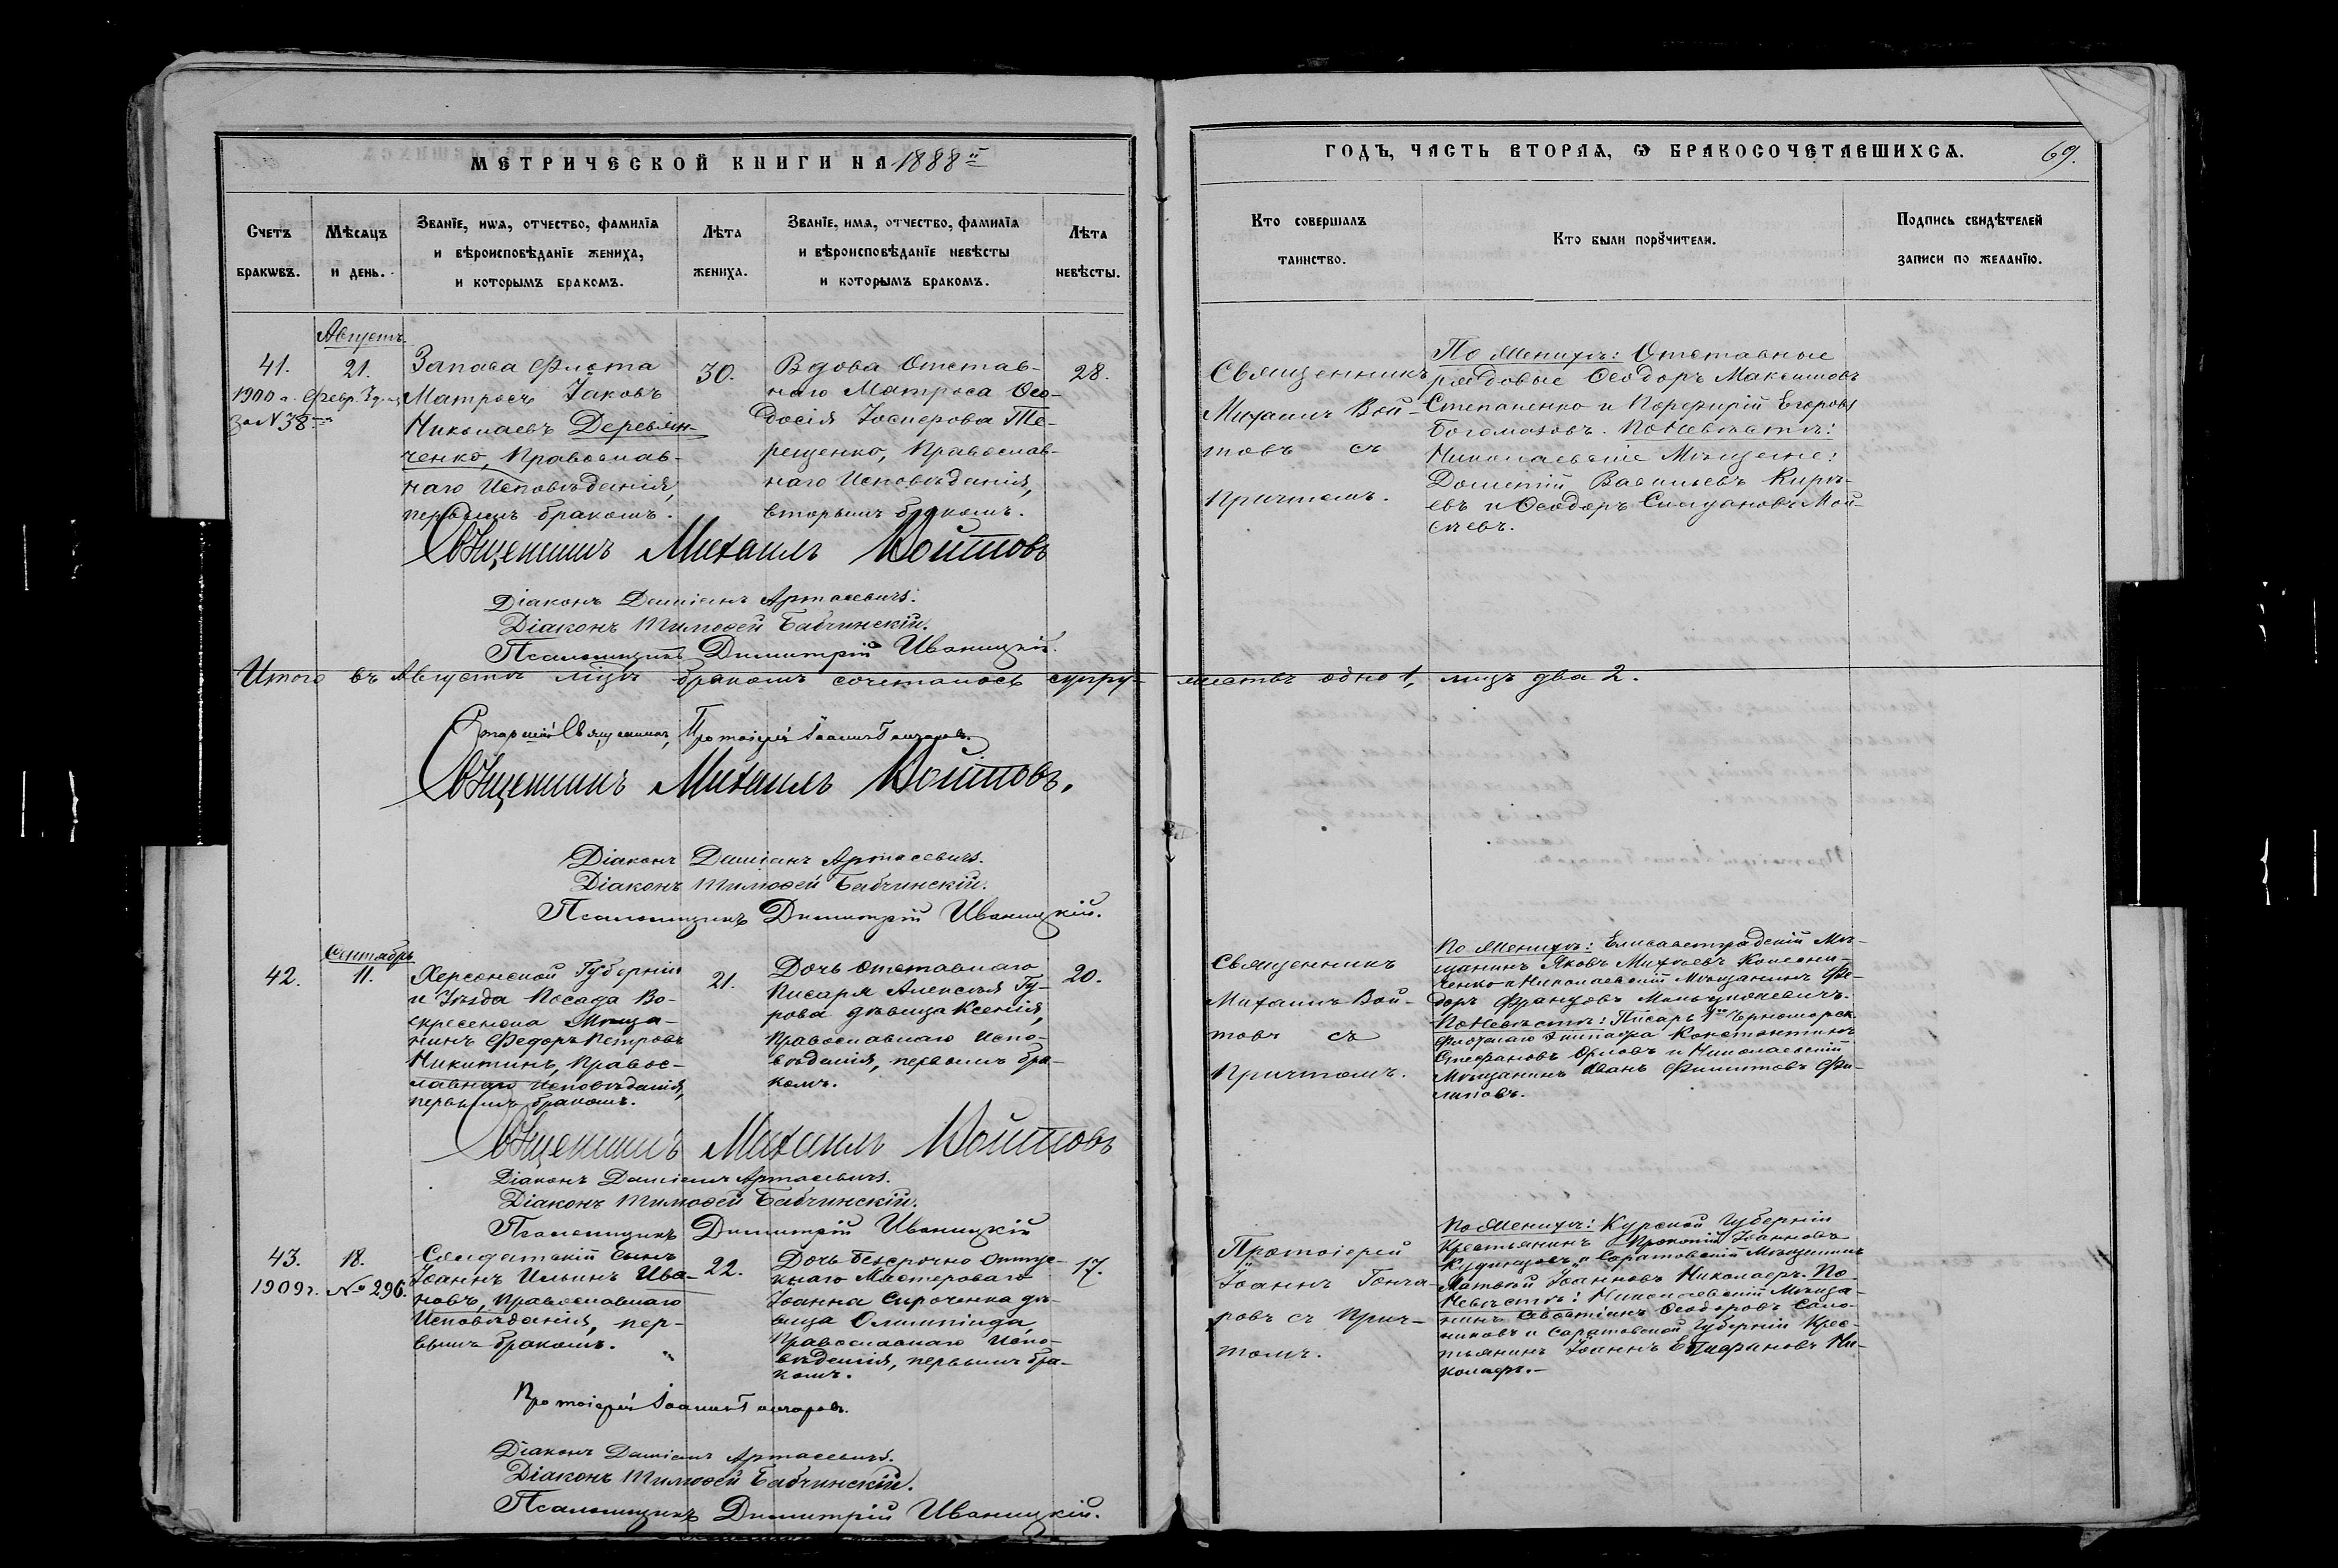 МЕТРИЧЕСКОЙ КНИГИ НА 1888й
ГОДЪ, ЧАСТЬ ВТОРАЯ, Ѡ БРАКОСОЧЕТАВШИХСЯ.
69.
Счетъ
браковъ.
Мѣсяцъ
и день.
Званїе, имя, отчество, фамилїя
и вѣроисповѣданїе жениха,
и которымъ бракомъ.
Лѣта
жениха.
Званїе, имя, отчество, фамилїя
и вѣроисповѣданїе невѣсты
и которымъ бракомъ.
Лѣта
невѣсты.
Кто совершалъ
таинство.
Кто были порꙋчители.
Подпись свидѣтелей
записи по желанїю.
Августъ
41.
21.
1900 г. Февр.
за № 38
Запаса Флота
Матросъ Іаковъ
Николаевъ Деревян-
ченко, Православ-
наго Исповѣданія,
первымъ бракомъ.
30.
Вдова Отстав-
наго Матроса Ѳео-
досія Іосифова Те-
рещенко, Православ-
наго Исповѣданія,
вторымъ бракомъ.
28.
Священникъ
Михаилъ Вой-
товъ съ
Причтомъ.
По Женихѣ: Отставные
рядовые Ѳеодоръ Максимовъ
Степаненко и Порфирій Егоровъ
Богомазовъ. По Невѣстѣ:
Николаевскіе Мѣщане:
Дометій Васильевъ Кирѣ-
евъ и Ѳеодоръ Мой-
сѣевъ.
Священникъ Михаилъ Войтовъ
Діаконъ Даміанъ Артасевичъ.
Діаконъ Тимоѳей Бабчинскій.
Псаломщикъ Димитрій Иваницкій.
Итого въ Августѣ мцѣ бракомъ сочеталось супру-
жествъ одно 1, лицъ два 2.
Старшій Священникъ, Протоіерей Іоаннъ Гончаровъ.
Священникъ Михаилъ Войтовъ.
Діаконъ Даміанъ Артасевичъ.
Діаконъ Тимоѳей Бабчинскій.
Псаломщикъ Димитрій Иваницкій.
Сентябрь
42.
11.
Херсонской Губерніи
и Уѣзда Посада Во-
скресенска Мѣща-
нинъ Федоръ Петровъ
Никитинъ, Правос-
лавнаго Исповѣданія,
первымъ бракомъ.
21.
Дочь отставнаго
Писаря Алексѣя Гу-
рова дѣвица Ксенія,
Православнаго Испо-
вѣданія, первымъ бра-
комъ.
20.
Священникъ
Михаилъ Вой-
товъ съ
Причтомъ.
По Женихѣ: Елисаветградскій Мѣ-
щанинъ Яковъ Михѣевъ Колесни-
ченко и Николаевскій Мѣщанинъ Фе-
доръ Францовъ
По Невѣстѣ: Писарь 1го Черноморск.
Флотскаго Экипажа Константинъ
Стефановъ Орловъ и Николаевскій
Мѣщанинъ Иванъ Филиповъ Фи-
липовъ.
Священникъ Михаилъ Войтовъ
Діаконъ Даміанъ Артасевичъ.
Діаконъ Тимоѳей Бабчинскій.
Псаломщикъ Димитрій Иваницкій
43.
18.
1909 г. № 296.
Солдатскій сынъ
Іоаннъ Ильинъ Ива-
новъ, Православнаго
Исповѣданія, пер-
вымъ бракомъ.
22.
Дочь безсрочно отпус-
кнаго Мастероваго
Іоанна Сироченка дѣ-
вица Олимпіада,
Православнаго Испо-
вѣданія, первымъ бра-
комъ.
17.
Протоіерей
Іоаннъ Гонча-
ровъ съ Прич-
томъ.
По Женихѣ: Курской Губерніи
Крестьянинъ Прокопій Іоанновъ
Кудинцовъ и Саратовскій Мѣщанинъ
Матвѣй Іоанновъ Николаевъ. По
Невѣстѣ: Николаевскій Мѣща-
нинъ Савостіанъ Ѳеодоровъ Сапо-
жниковъ и Саратовской Губерніи Крес-
тьянинъ Іоаннъ Епифановъ Ни-
колаевъ.
Протоіерей Іоаннъ Гончаровъ.
Діаконъ Даміанъ Артасевичъ.
Діаконъ Тимоѳей Бабчинскій.
Псаломщикъ Димитрій Иваницкій.